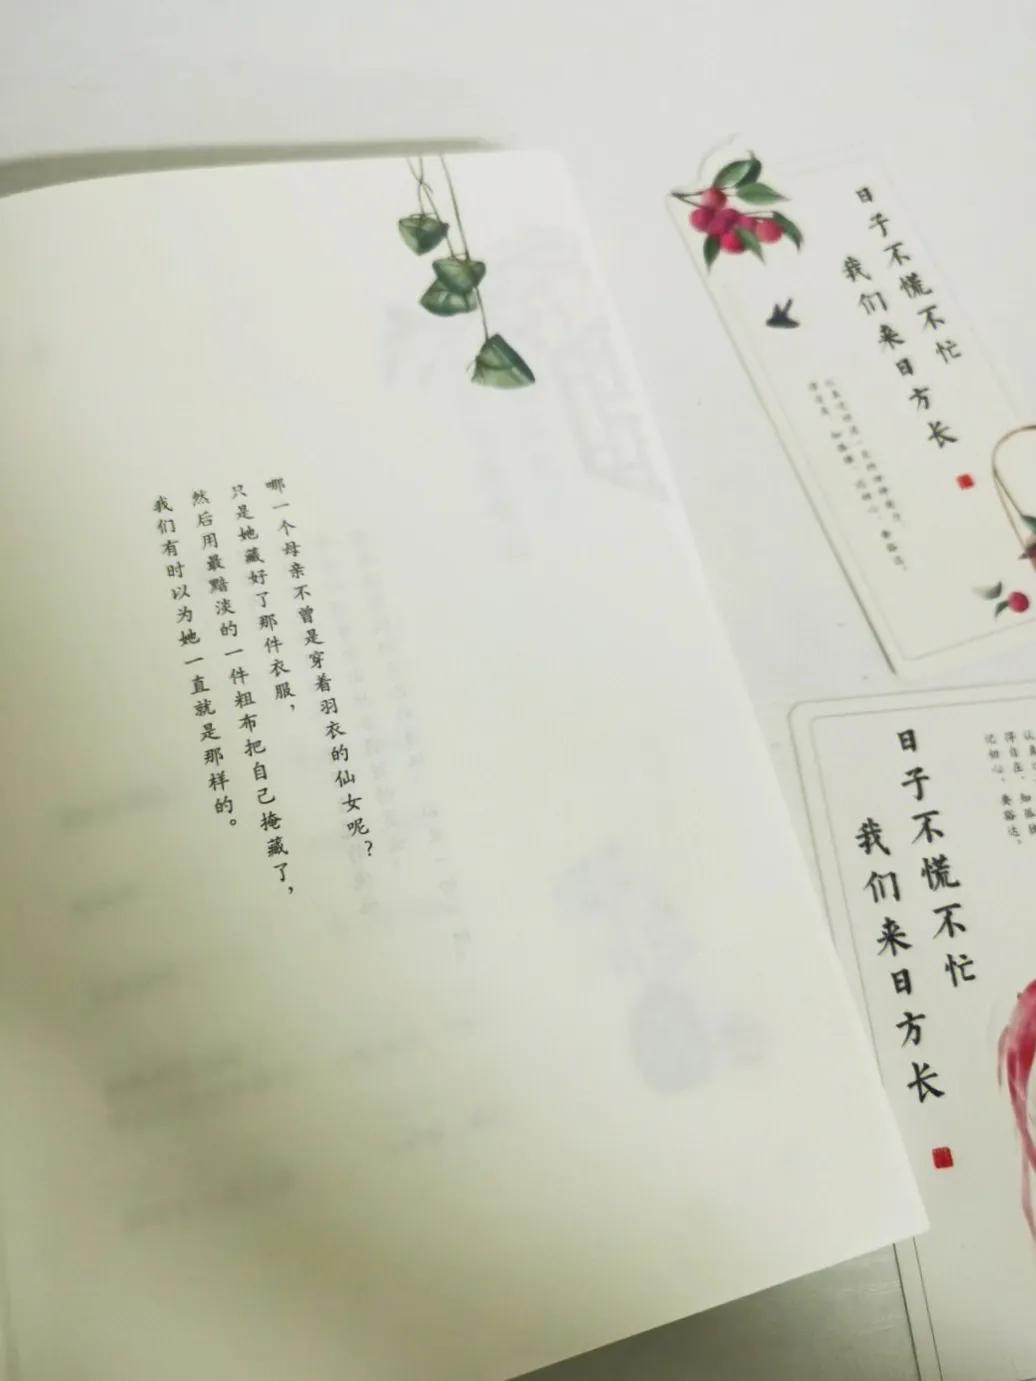 哪一个母亲不曾是穿着羽衣的仙女呢？
只是她藏好了那件衣服，
然后用最黯淡的一件粗布把自己掩藏了，
我们有时以为她一直就是那样的。
日子不慌不忙
我们来日方长
日子不慌不忙
我们来日方长
得自在，知
记初心，要豁达。